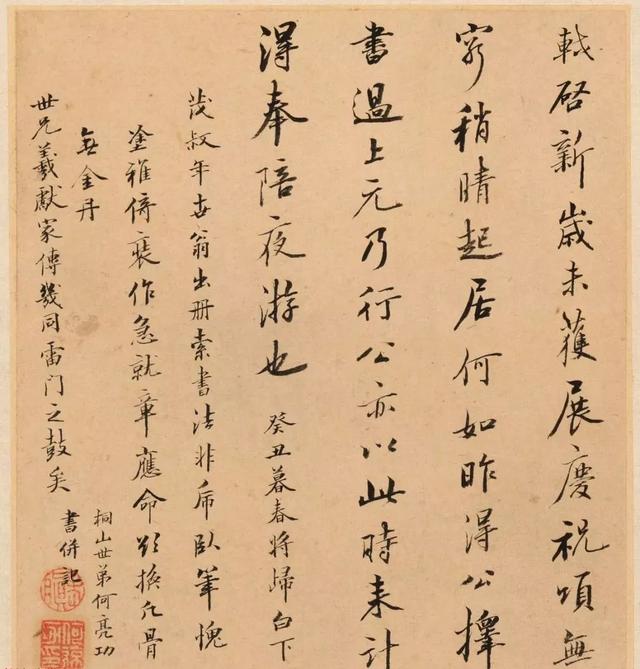 軾啓新歲未獲展慶祝頌無
窮稍晴起居何如昨得公擇
書過上元乃行公亦以此時来計
得奉陪夜游也
癸丑暮春將歸白下
茂叔年世翁出册索書法非帋卧筆愧
塗雅倚裹作急就章應命欲換凢骨
無金丹
世兄羲獻家傳幾同雷门之鼓矣
桐山世弟何亮功
書併記